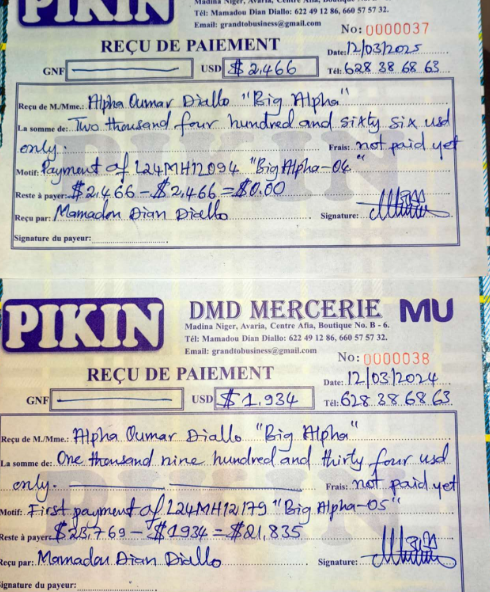 PIKIN
Madina Niger, Avaria, Centre Afia, Boutique No. B - 6.
Tél: Mamadou Dian Diallo: 622 49 12 86, 660 57 57 32.
Email: grandtobusiness@gmail.com
No: 0000037
REÇU DE PAIEMENT
Date: 12/03/2025
GNF USD $ 2,466 Tél: 628 38 68 63
Reçu de M./Mme.: Alpha Oumar Diallo "Big Alpha"
La somme de: Two thousand four hundred and sixty six usd
only. Frais: not paid yet
Motif: Payment of L24MH12094 "Big Alpha-04"
Reste à payer: $2,466 - $2,466 = $0.00
Reçu par: Mamadou Dian Diallo Signature:
Signature du payeur:
PIKIN
DMD MERCERIE MU
Madina Niger, Avaria, Centre Afia, Boutique No. B - 6.
Tél: Mamadou Dian Diallo: 622 49 12 86, 660 57 57 32.
Email: grandtobusiness@gmail.com
No: 0000038
REÇU DE PAIEMENT
Date: 12/03/2024
GNF USD $ 1,934 Tél: 628 38 68 63
Reçu de M./Mme.: Alpha Oumar Diallo "Big Alpha"
La somme de: One thousand nine hundred and thirty four usd
only. Frais: not paid yet
Motif: First payment of L24MH12179 "Big Alpha-05"
Reste à payer: $23,769 - $1934 = $21,835
Reçu par: Mamadou Dian Diallo Signature:
Signature du payeur: